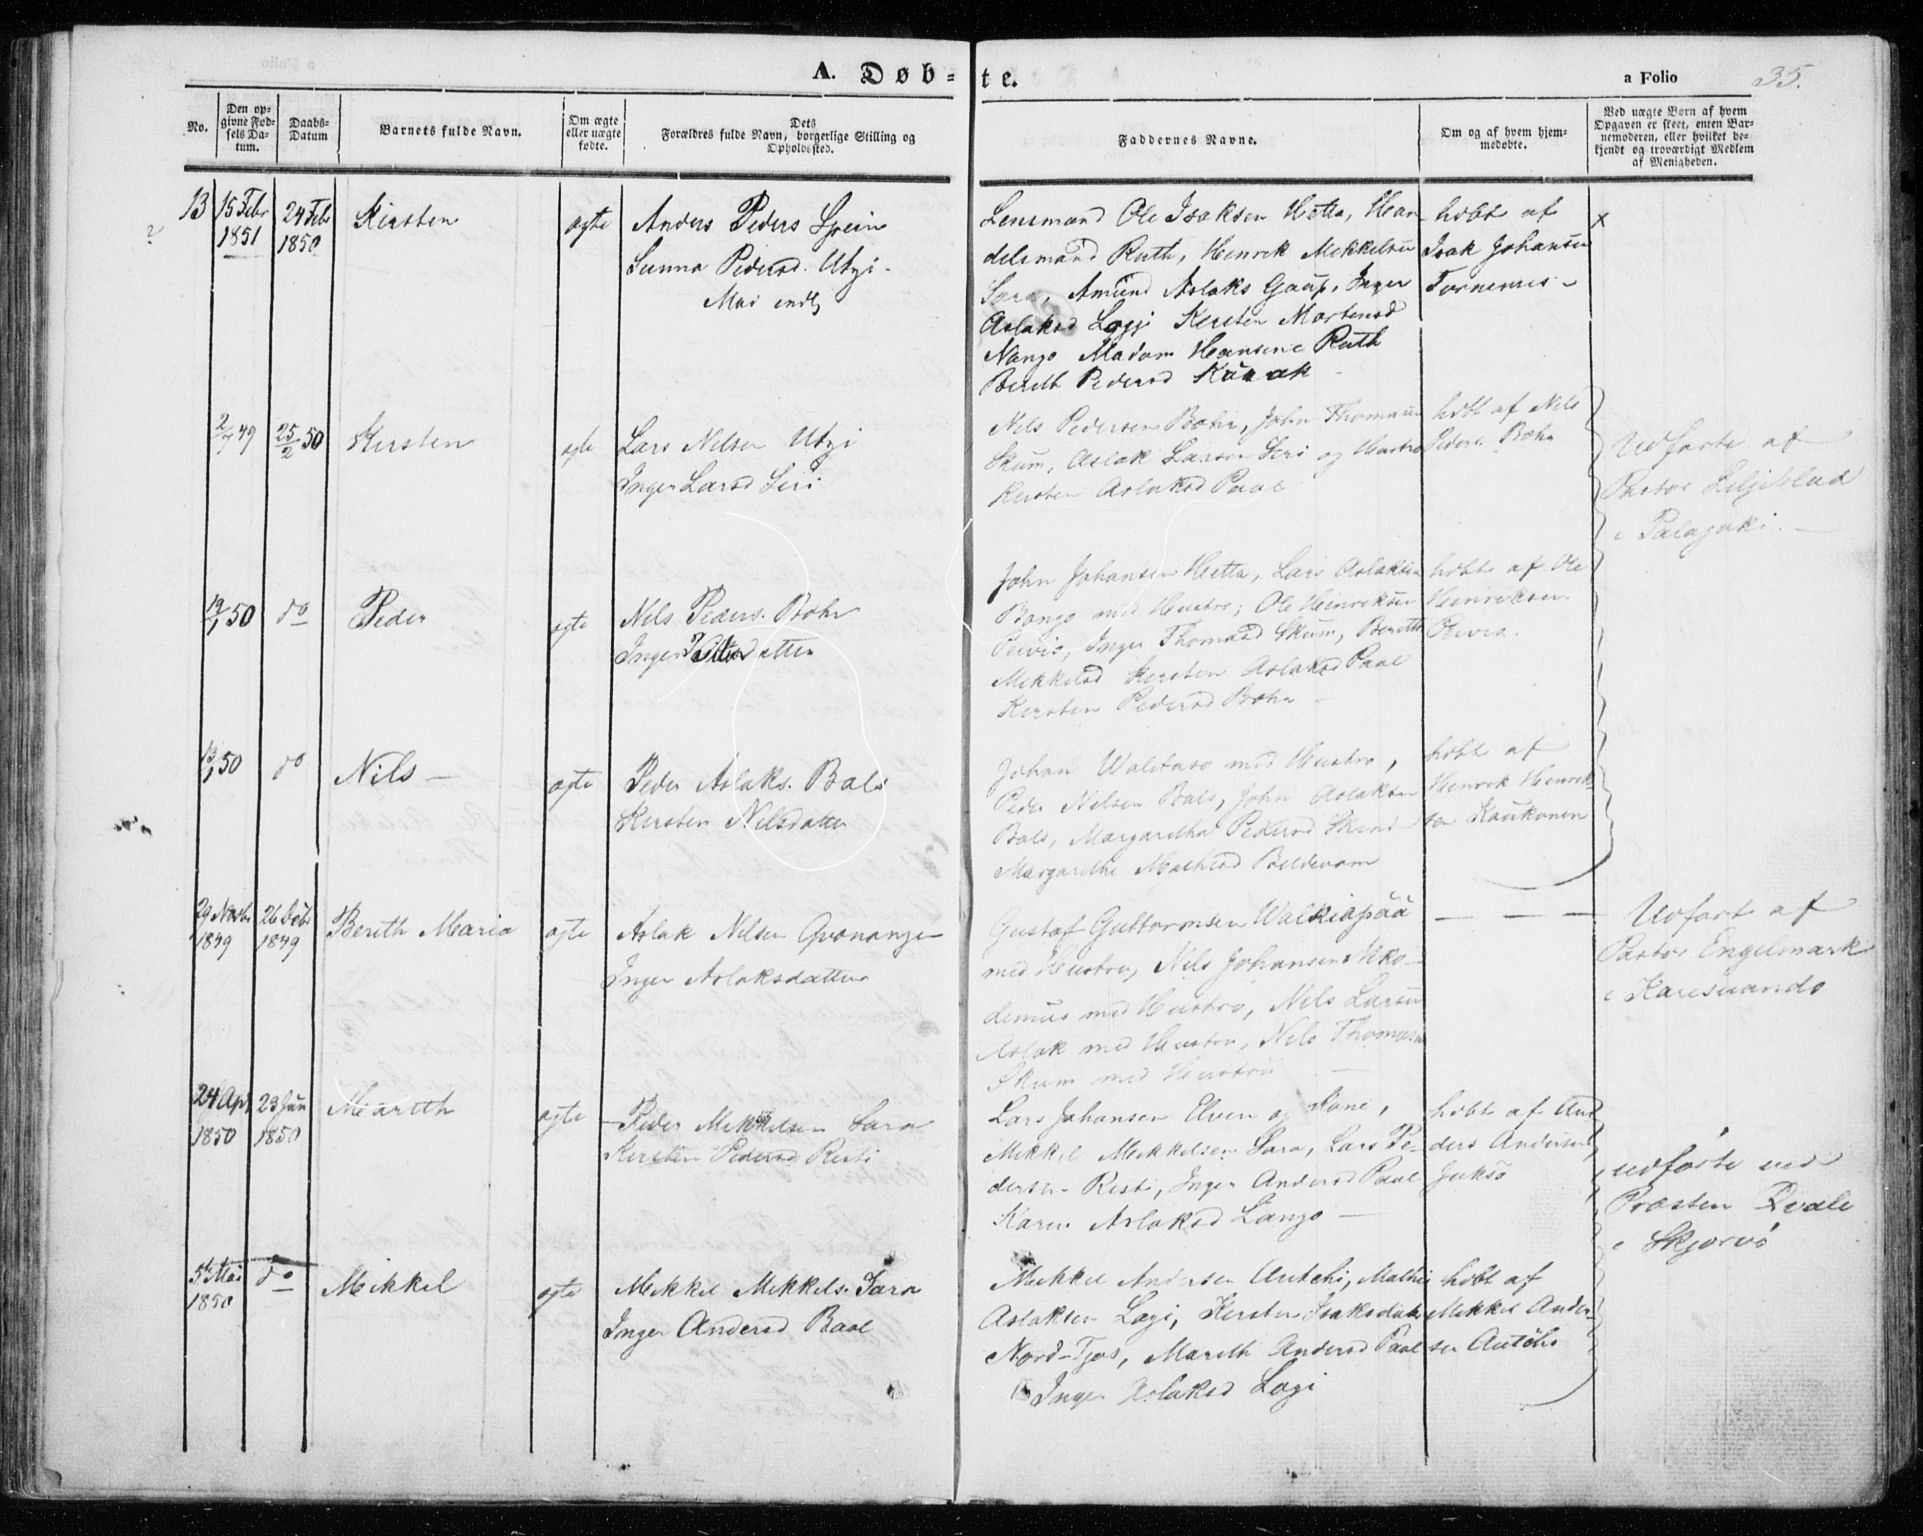 A. Døb-te.
a Folio 35.
No.
Den op-
givne Fød-
sels Da-
tum.
Daabs-
Datum
Barnets fulde Navn.
Om ægte
eller uægte
fødte.
Dets
Forældres fulde Navn, borgerlige Stilling og
Opholdssted.
Faddernes Navne.
Om og af hvem hjem-
medøbte.
Ved uægte Børn af hvem
Opgaven er skeet, enten Bar-
nemoderen, eller hvilket be-
kjendt og troværdigt Medlem
af Menigheden.
13
15 Febr
1851
24 Feb
1850
Kirsten
ægte
Anders Peders Spein
Sunna Pedersd. Utzi
Lensmand Ole Isaksen Hetta, Han
delsmand Ruth, Henrik Mikkelsen
Sara, Amund Aslaks Gaup, Inger
Aslaksd Logji Kersten Mortensd
Nango Madam Hansine Ruth
Bereth Pedersd Kurrak
hdbt af
Isak Johansen
Tornensis
x
2/7 49
25/2 50
Kersten
ægte
Lars Nilsen Utzi
Inger Larsd Siri
Nils Pedersen Bohr, John Thomasen
Skum, Aslak Larsen Siri og Hustro
Kersten Aslaksd Paal
hdbt af Nils
Peders Bohr
Udførte af
Pastor Liljeblad
i Palajoki.
19/1 50
do
Peder
ægte
Nils Peders. Bohr
Inger
John Johansen Hetta, Lars Aslaksen
Bongo med Hustro; Ole Heinriksen
Peivio, Inger Thomasd Skum, Bereth
Mikkelsd Kersten Aslaksd Paal
Kersten Pedersd Bohr
hdbt af Ole
Heinriksen
Peivio.
13/1 50
do
Nils
ægte
Peder Aslaks. Bals
Kersten Nilsdatter
Johan Waltaso med Hustro,
Peder Nilsen Bals, John Aslaksen
Bals, Margaretha Pedersd
Margarethe Mathisd
hdbt af
Henrik Henrik
sen Kaukonen
29 Novbr
1849
26 Debr
1849
Bereth Maria
ægte
Aslak Nilsen Qvonange
Inger Aslaksdatter
Gustaf Guttormsen Walkiapää
med Hustro, Nils Johansen Niko-
demus med Hustro, Nils Larsen
Aslak med Hustro, Nils Thomasen
Skum med Hustro
— — —
Udført af
Pastor Engelmark
i Karesuando
24 Apr
1850
23 Jun
1850
Mareth
ægte
Peder Mikkelsen Sara
Kersten Pedersd Risti
Lars Johansen Elven og Kone,
Mikkel Mikkelsen Sara, Lars Pe-
dersen Risti, Inger Andersd Paal
Karen Aslaksd Lango
hdbt af An
ders Andersen
Juksø
udførte ved
Præsten Qvale
i Skjervø
5te Mai
1850
do
Mikkel
ægte
Mikkel Mikkels. Sara
Inger Andersd Baal
Mikkel Andersen Autchi, Mathis
Aslaksen Logi, Kersten Isaksdatter
Nord-Fjos, Mareth Andersd Paal
Inger Aslaksd Logi
hdbt af
Mikkel Ander-
sen Autchi